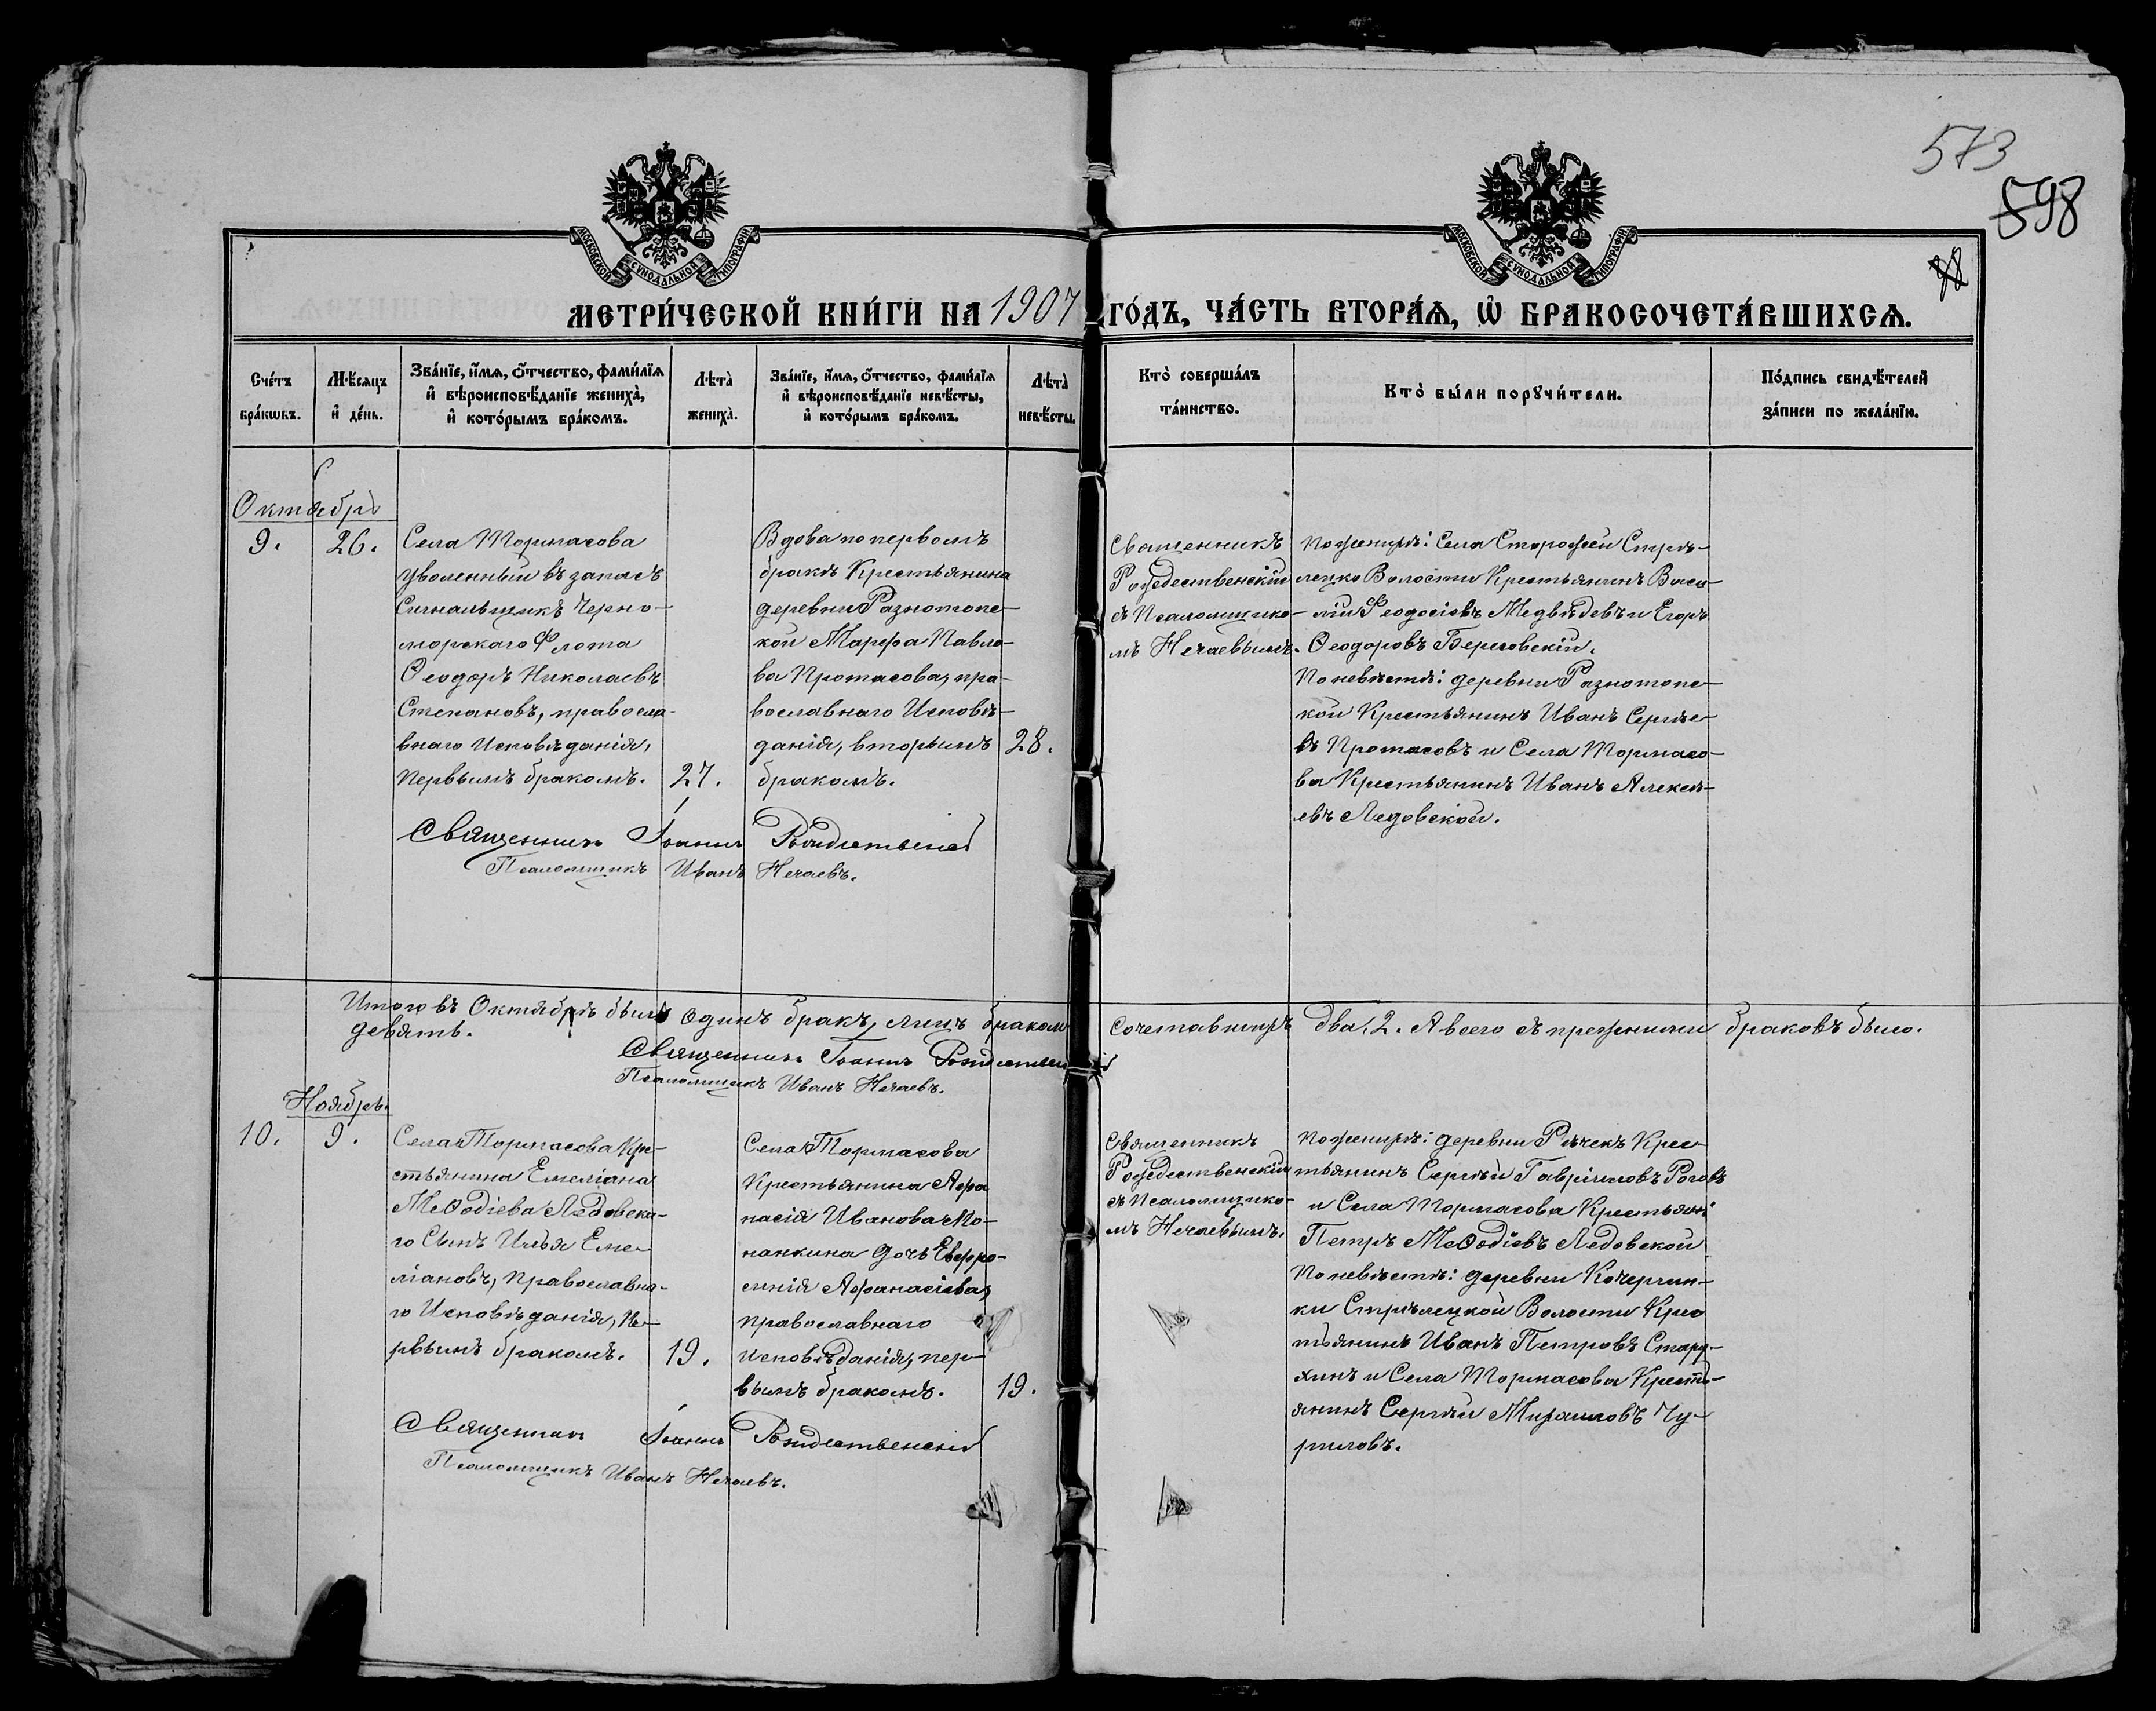 573
598
МОСКОВСКОЙ СѴНОДАЛЬНОЙ ТИПОГРАФІИ
МОСКОВСКОЙ СѴНОДАЛЬНОЙ ТИПОГРАФІИ
МЕТРИ́ЧЕСКОЙ КНИ́ГИ НА 1907 ГО́ДЪ, ЧА́СТЬ ВТОРА́Ѧ, Ѿ БРАКОСОЧЕТА́ВШИХСѦ.
Сче́тъ бра́кѡвъ.
Мѣ́сяцъ и҆ де́нь.
Зва́нїе, и҆́мѧ, ѻ҆́тчество, фами́лїѧ
и҆ вѣроисповѣ́данїе жениха̀,
и҆ кото́рымъ бра́комъ.
Лѣта̀ жениха̀.
Зва́нїе, и҆́мѧ, ѻ҆́тчество, фами́лїѧ
и҆ вѣроисповѣ́данїе невѣ́сты,
и҆ кото́рымъ бра́комъ.
Лѣта̀ невѣ́сты.
Кто̀ соверша́лъ
та́инство.
Кто̀ бы́ли порꙋчи́тели.
По́дпись свидѣ́телей
за́писи по жела́нїю.
Октябрь
9.
26.
Села Тормасова
уволенный въ запасъ
Сигнальщикъ Черно-
морскаго Флота
Ѳеодоръ Николаевъ
Степановъ, правосла-
внаго Исповѣданія,
первымъ бракомъ.
27.
Вдова по первомъ
бракѣ Крестьянина
деревни Разнотопс-
кой Марфа Павло-
ва Протасова, пра-
вославнаго Исповѣ-
данія, вторымъ
бракомъ.
28.
Священникъ
Рождественскій
съ Псаломщико-
мъ Нечаевымъ.
По женихѣ: Села Сторожей Стрѣ-
лецко Волости Крестьянинъ Васи-
лій Феодосіевъ Медвѣдевъ и Егоръ
Ѳеодоровъ Берговскій.
По невѣстѣ: деревни Разнотопс-
кой Крестьянинъ Иванъ Сергѣе-
въ Протасовъ и Села Тормасо-
ва Крестьянинъ Иванъ Алексѣ-
евъ Ледовской.
Священникъ Іоаннъ Рождественскій
Псаломщикъ Иванъ Нечаевъ.
Итого въ Октябрѣ былъ одинъ бракъ, лицъ браком сочетавшихъ два. 2. А всего съ прежними браковъ было.
девять.
Священникъ Іоаннъ Рождественскій
Псаломщикъ Иванъ Нечаевъ.
Ноябрь.
10.
9.
Села Тормасова Кре-
стьянина Емеліана
Меѳодіева Ледовска-
го Сынъ Илья Еме-
ліановъ, Православна-
го Исповѣданія, пе-
рвымъ бракомъ.
19.
Села Тормасова
Крестьянина Афа
насія Иванова Мо-
нанкина дочь Евфро-
синія Афанасіева,
православнаго
исповѣданія, пер-
вымъ бракомъ.
19.
Священникъ
Рождественскій
съ Псаломщико-
мъ Нечаевымъ.
По женихѣ: деревни Рѣчекъ Крес-
тьянинъ Сергѣй Гавріиловъ Роговъ
и Села Тормасова Крестьяни
Петръ Меѳодіевъ Ледовской
По невѣстѣ: деревни Кочергин-
ки Стрѣлецкой Волости Крес
тьянинъ Иванъ Петровъ Стару-
хинъ и Села Тормасова Кресть-
янинъ Сергѣй Михаиловъ Чу-
риловъ.
Священникъ Іоаннъ Рождественскій
Псаломщикъ Иванъ Нечаевъ.